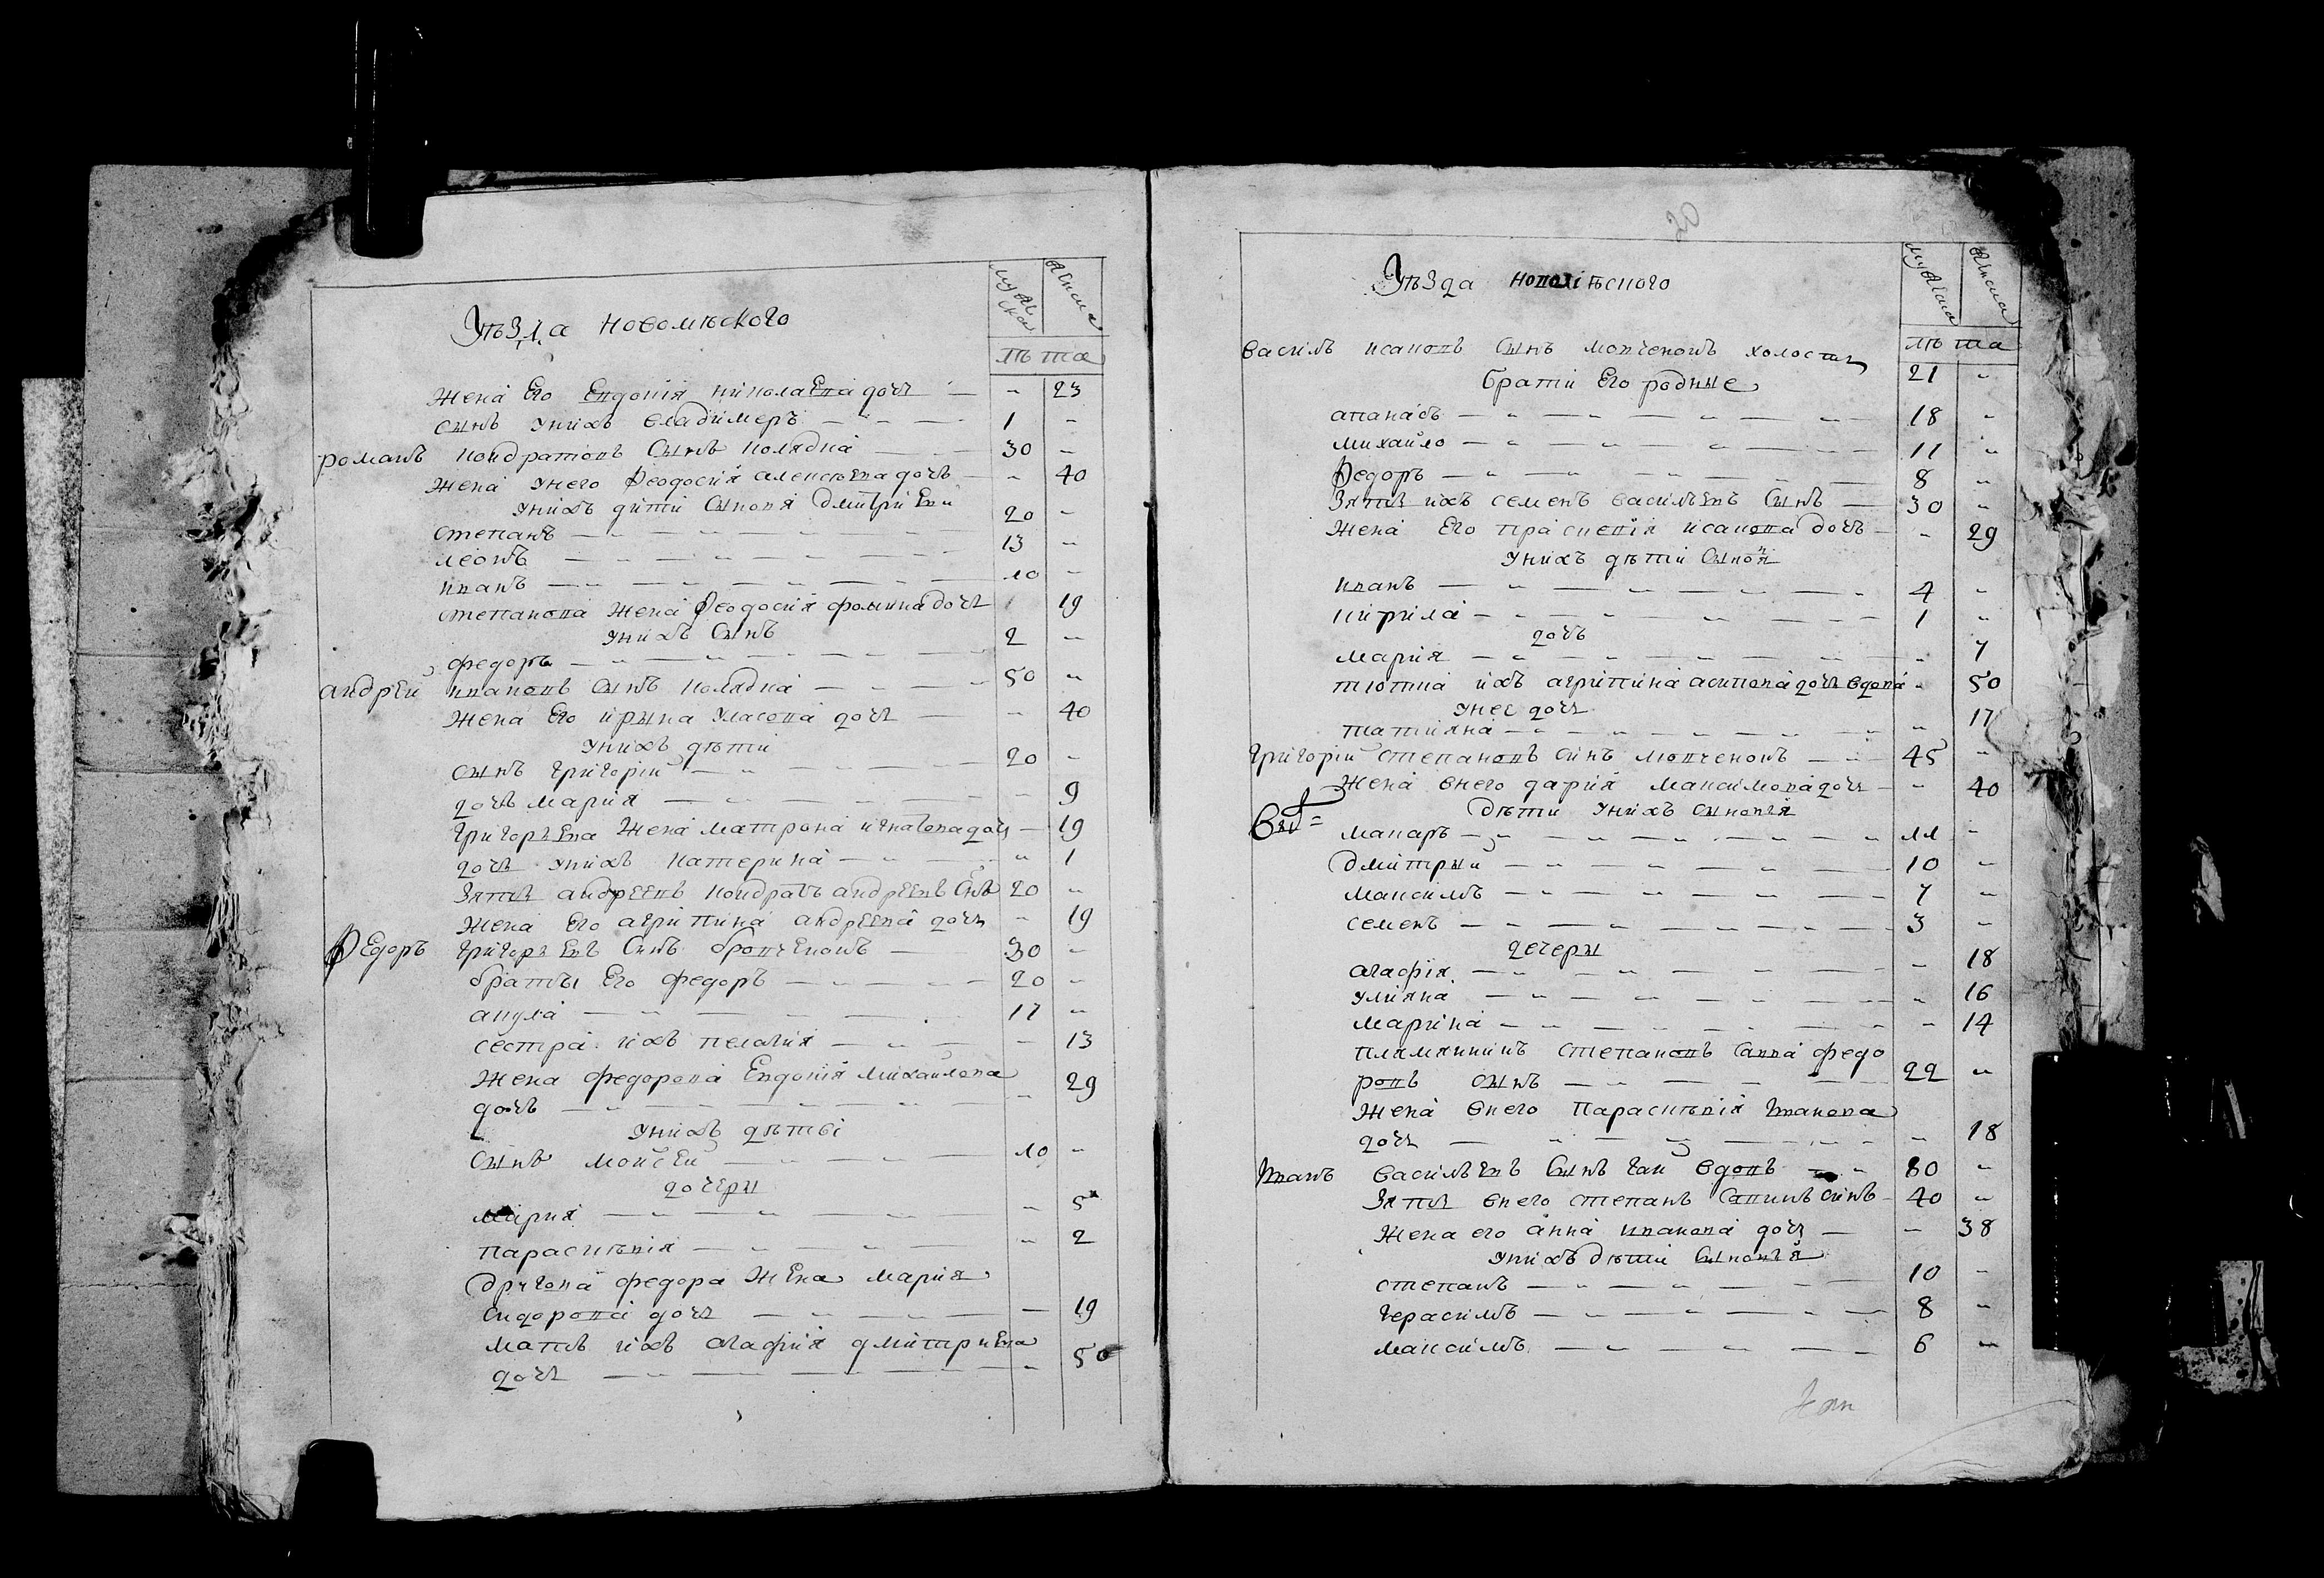 Уѣзда Новомѣского
мужска женска
лѣта
жена Его Евдокия николаева дочь — „ 23
сынъ унихъ владимеръ — „ — 1 „
романъ кондратовъ сынъ колядка — 30 „
жена унего Феодосия алексѣева дочь — „ 40
унихъ дити сыновя дмитриеви
степанъ — 20 „
леонъ — 13 „
иванъ — 10 „
степанова жена Феодосия фомина дочь 19
унихъ сынъ
федоръ — 2 „
андрей ивановъ сынъ колядка — 50 „
жена Его ирына уласова дочь — „ 40
унихъ дѣти
сынъ григорій — 20 „
дочь мария — „ 9
григорьева жена матрона игнатова дочь — 19
дочь унихъ катерина — „ 1
зять андреевъ кондратъ андреевъ снъ 20 „
жена Его агрипина андреева дочь „ 19
Федоръ григорьевъ снъ бровченокъ — 30 „
браты Его федоръ — 20 „
акула — 17 „
сестра ихъ пелагия — „ 13
жена федорова Евдокия михайлова
дочь — „ 29
унихъ дѣтѣи
сынъ мойсей — 10 „
дочеры
мария — „ 5
парасковия — „ 2
другова федора жена мария
сидорова дочь — — 19
мать ихъ агафия дмитриева
дочь — „ 50
Уѣзда новомѣского
мужеска женска
лѣта
василь исаковъ сынъ мовченокъ холостъ
21 „
братии Его родные
апанасъ — 18 „
михайло — 11 „
Федоръ — 8 „
зять ихъ семенъ васильевъ сынъ — 30 „
жена Его прасковия исакова дочь — „ 29
унихъ дѣти сыновя
иванъ — 4 „
кирила — 1 „
дочь
мария — „ 7
тютка ихъ агрипина асипова дочь вдова „ 50
унее дочь
татияна — „ 17
григорій степановъ синъ мовченокъ — 45 „
жена внего дария максимова дочь — „ 40
дѣти унихъ сыновя
макаръ — 11 „
дмитрый — 10 „
максимъ — 7 „
семенъ — 3 „
дечеры
агафия — „ 18
улияна — „ 16
марина — „ 14
племянникъ степановъ савва федо
ровъ сынъ — 22 „
жена внего парасковия иванова
дочь — „ 18
иванъ васильевъ сынъ гай вдовъ — 80 „
зять внего степанъ сапинъ синъ — 40 „
жена его анна иванова дочь — — 38
унихъ дѣти сыновя
степанъ — 10 „
герасимъ — 8 „
максимъ — 6 „